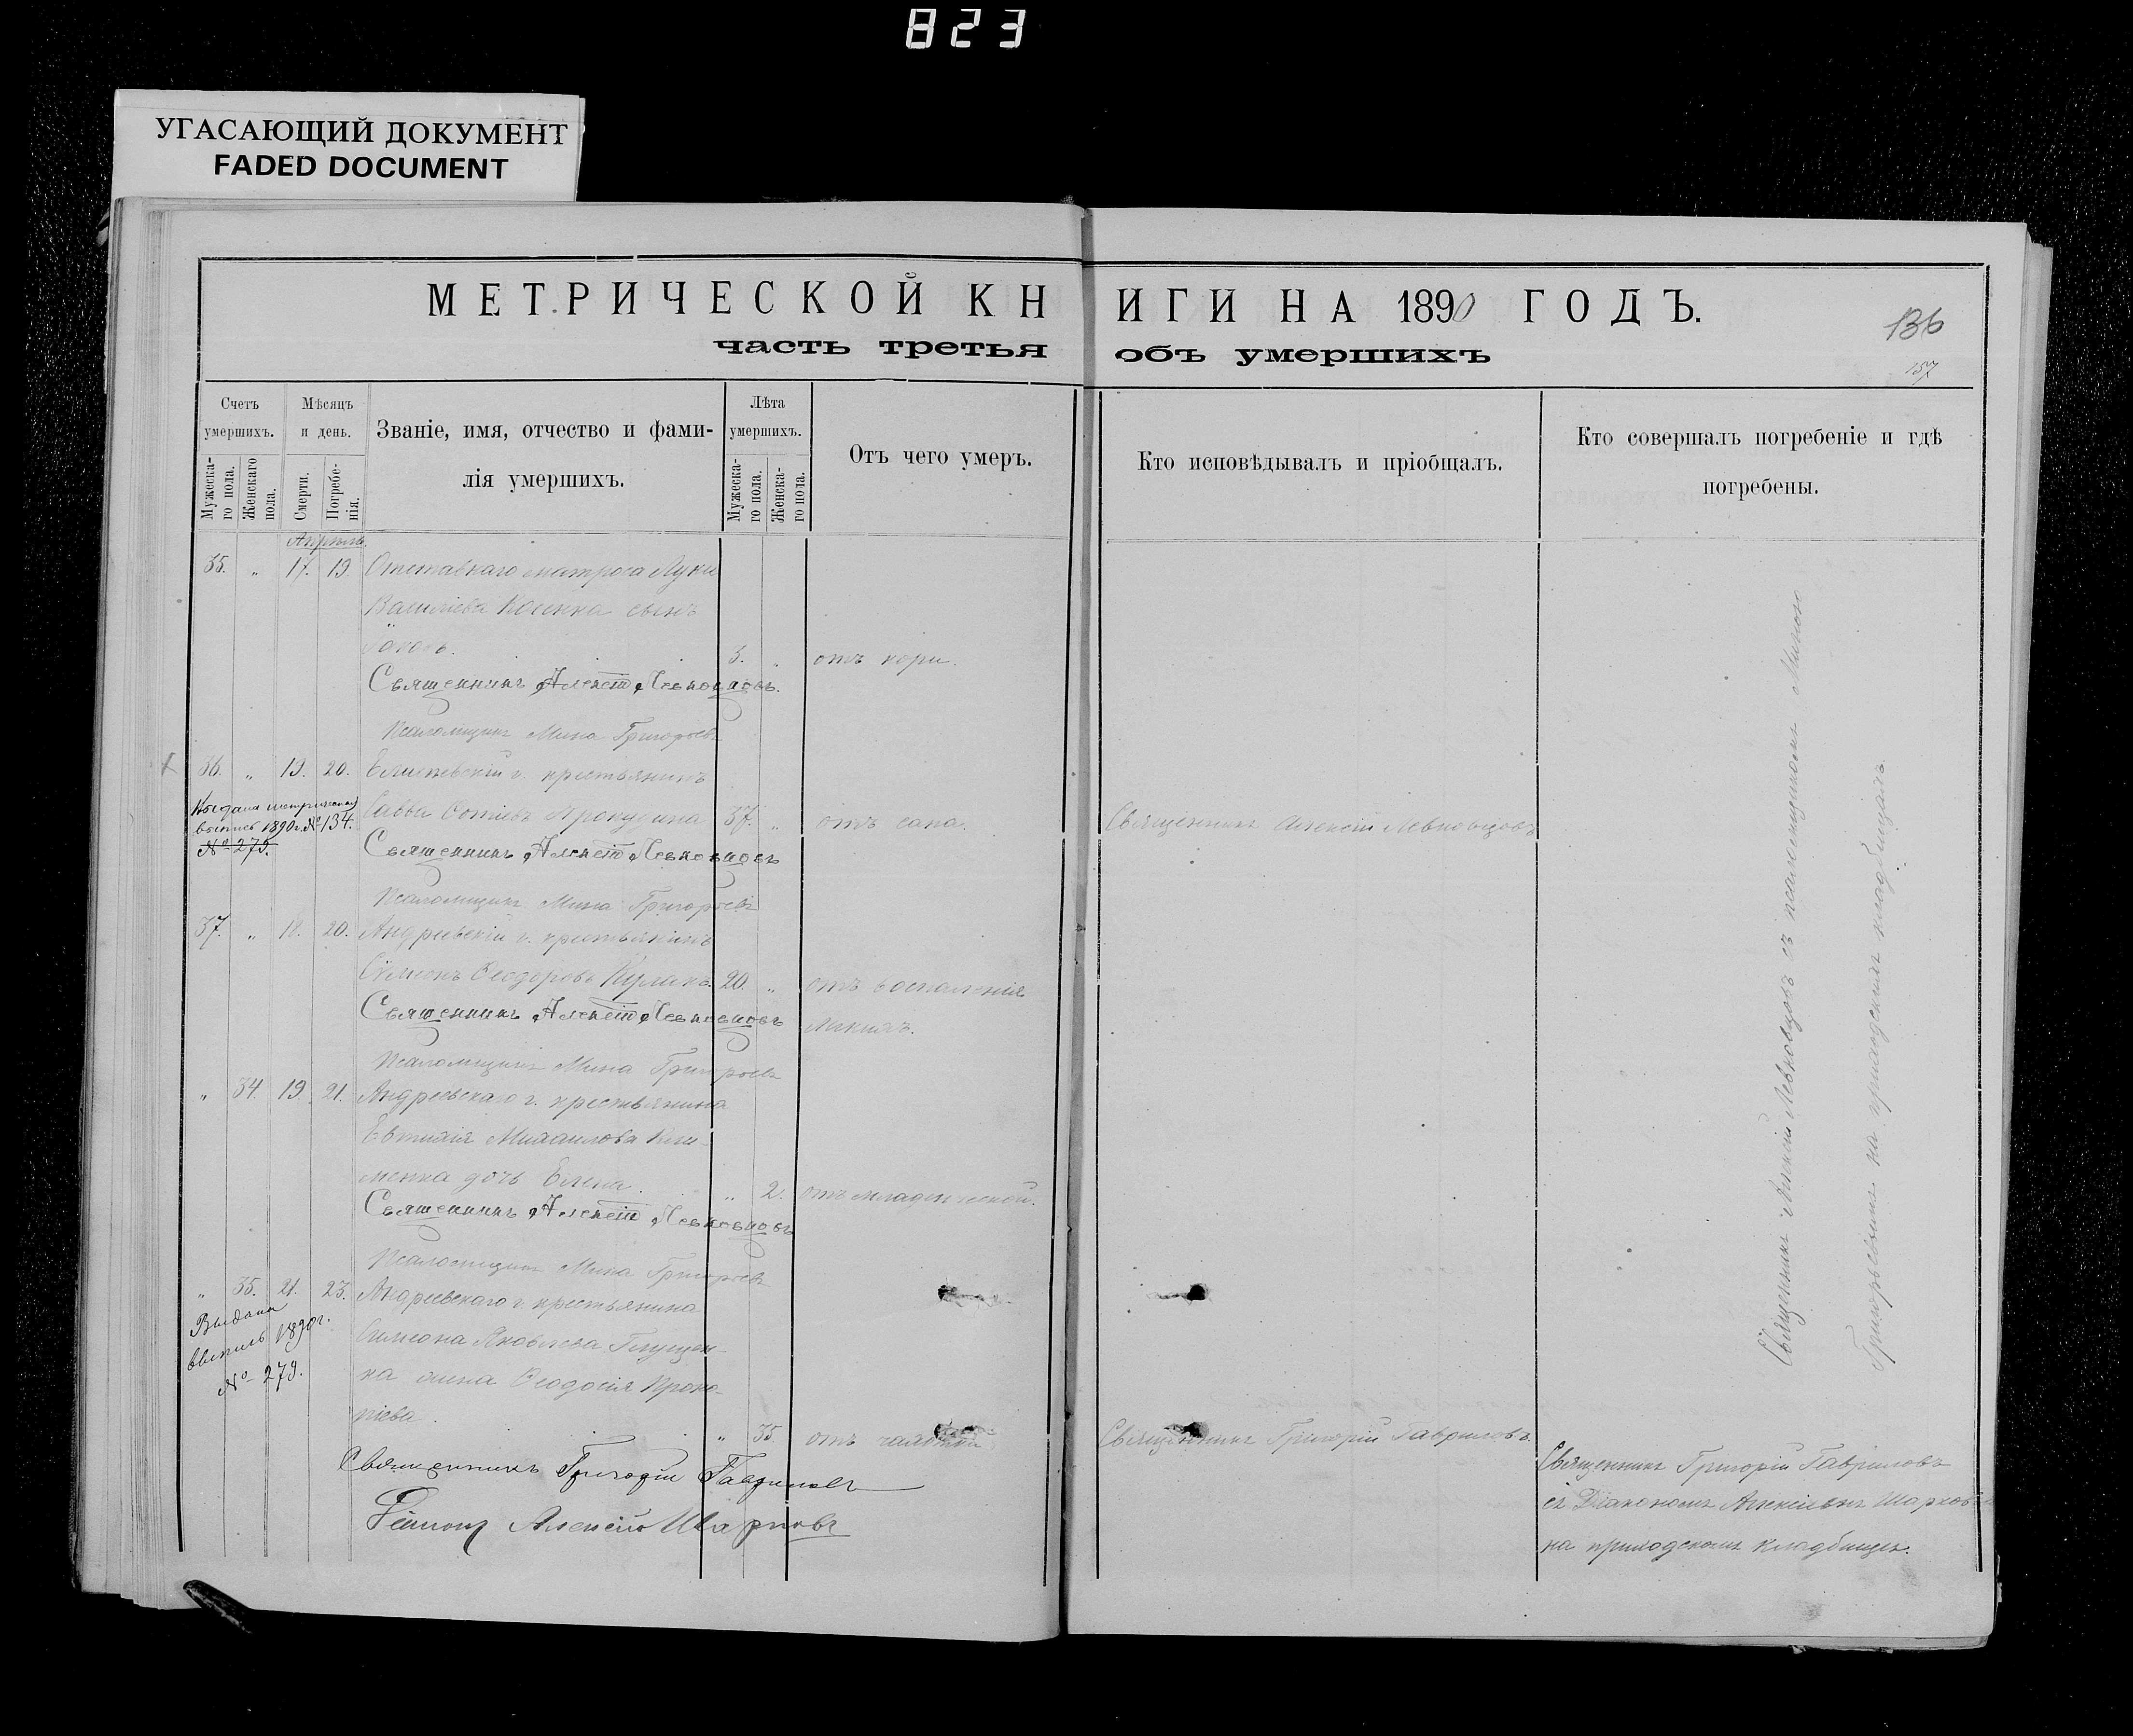 823
УГАСАЮЩИЙ ДОКУМЕНТ
FADED DOCUMENT
МЕТРИЧЕСКОЙ КНИГИ НА 1890 ГОДЪ.
136
часть третья объ умершихъ
157
Счетъ умершихъ.
Мужескаго пола.
Женскаго пола.
Мѣсяцъ и день.
Смерти.
Погребенія.
Званіе, имя, отчество и фамилія умершихъ.
Лѣта умершихъ.
Мужескаго пола.
Женскаго пола.
Отъ чего умеръ.
Кто исповѣдывалъ и пріобщалъ.
Кто совершалъ погребеніе и гдѣ погребены.
Апрель
35. „ 17. 19 Отставнаго матроса Луки
Василіева сынъ
3. „ отъ кори.
Священникъ Алексій Левковцовъ.
Псаломщикъ Мина Григорьевъ
36. „ 19. 20. г. крестьянинъ
Выдана метрическая
выпись 1890 г. № 134.
№ 279.
Савва 37. „ отъ Священникъ Алексій Левковцовъ
Священникъ Алексій Левковцовъ
Псаломщикъ Мина Григорьевъ
37. „ 18. 20. Андреевскій г. крестьянинъ
Симеонъ Ѳеодоровъ 20. „ отъ воспаленія
Священникъ Алексій Левковцовъ легкихъ.
Псаломщикъ Мина Григорьевъ
„ 34. 19. 21. Андреевскаго г. крестьянина
Евтихія Михаилова Кли-
менка дочь Елена. „ 2. отъ младенческой.
Священникъ Алексій Левковцовъ
Псаломщикъ Мина Григорьевъ
„ 35. 21. 23. Андреевскаго г. крестьянина
Выдана
выпись 1890 г.
№ 279.
Симеона Яковлева Глущен-
ка жена Ѳеодосія Проко-
піева. „ 35 отъ чахотки Священникъ Григорій Гавриловъ.
Священникъ Григорій Гавриловъ
Діаконъ Алексій Шарковъ
Священникъ Алексій Левковцовъ съ псаломщикомъ Миною
Григорьевымъ на приходскомъ кладбищѣ.
Священникъ Григорій Гавриловъ
съ Діакономъ Алексіемъ Шарковымъ
на приходскомъ кладбищѣ.